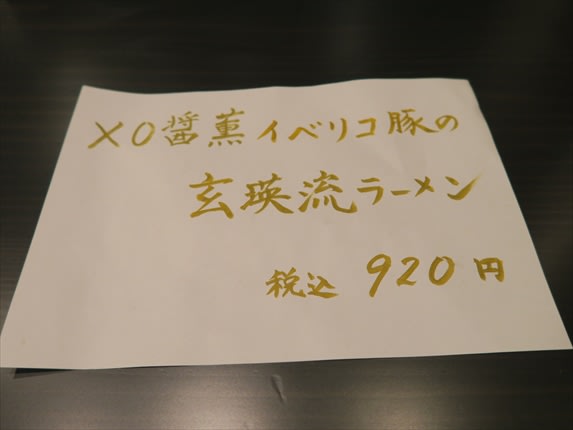 XO醤薫イベリコ豚の
玄瑛流ラーメン
税込 920円